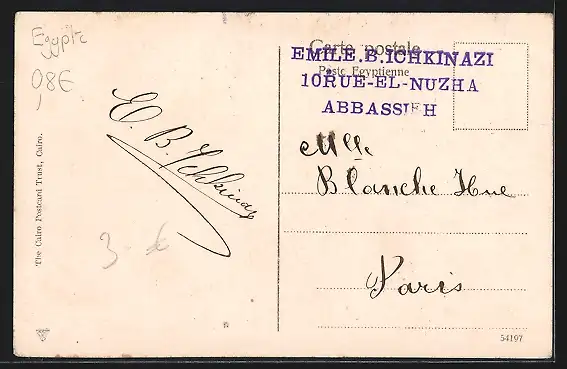 Egypte
08€
E. B. Ichkinazi
3 - €
The Cairo Postcard Trust, Cairo.
Carte postale
Poste Egyptienne
EMILE.B.ICHKINAZI
10RUE-EL-NUZHA
ABBASSIEH
Mlle
Blanche Hue
Paris
54197